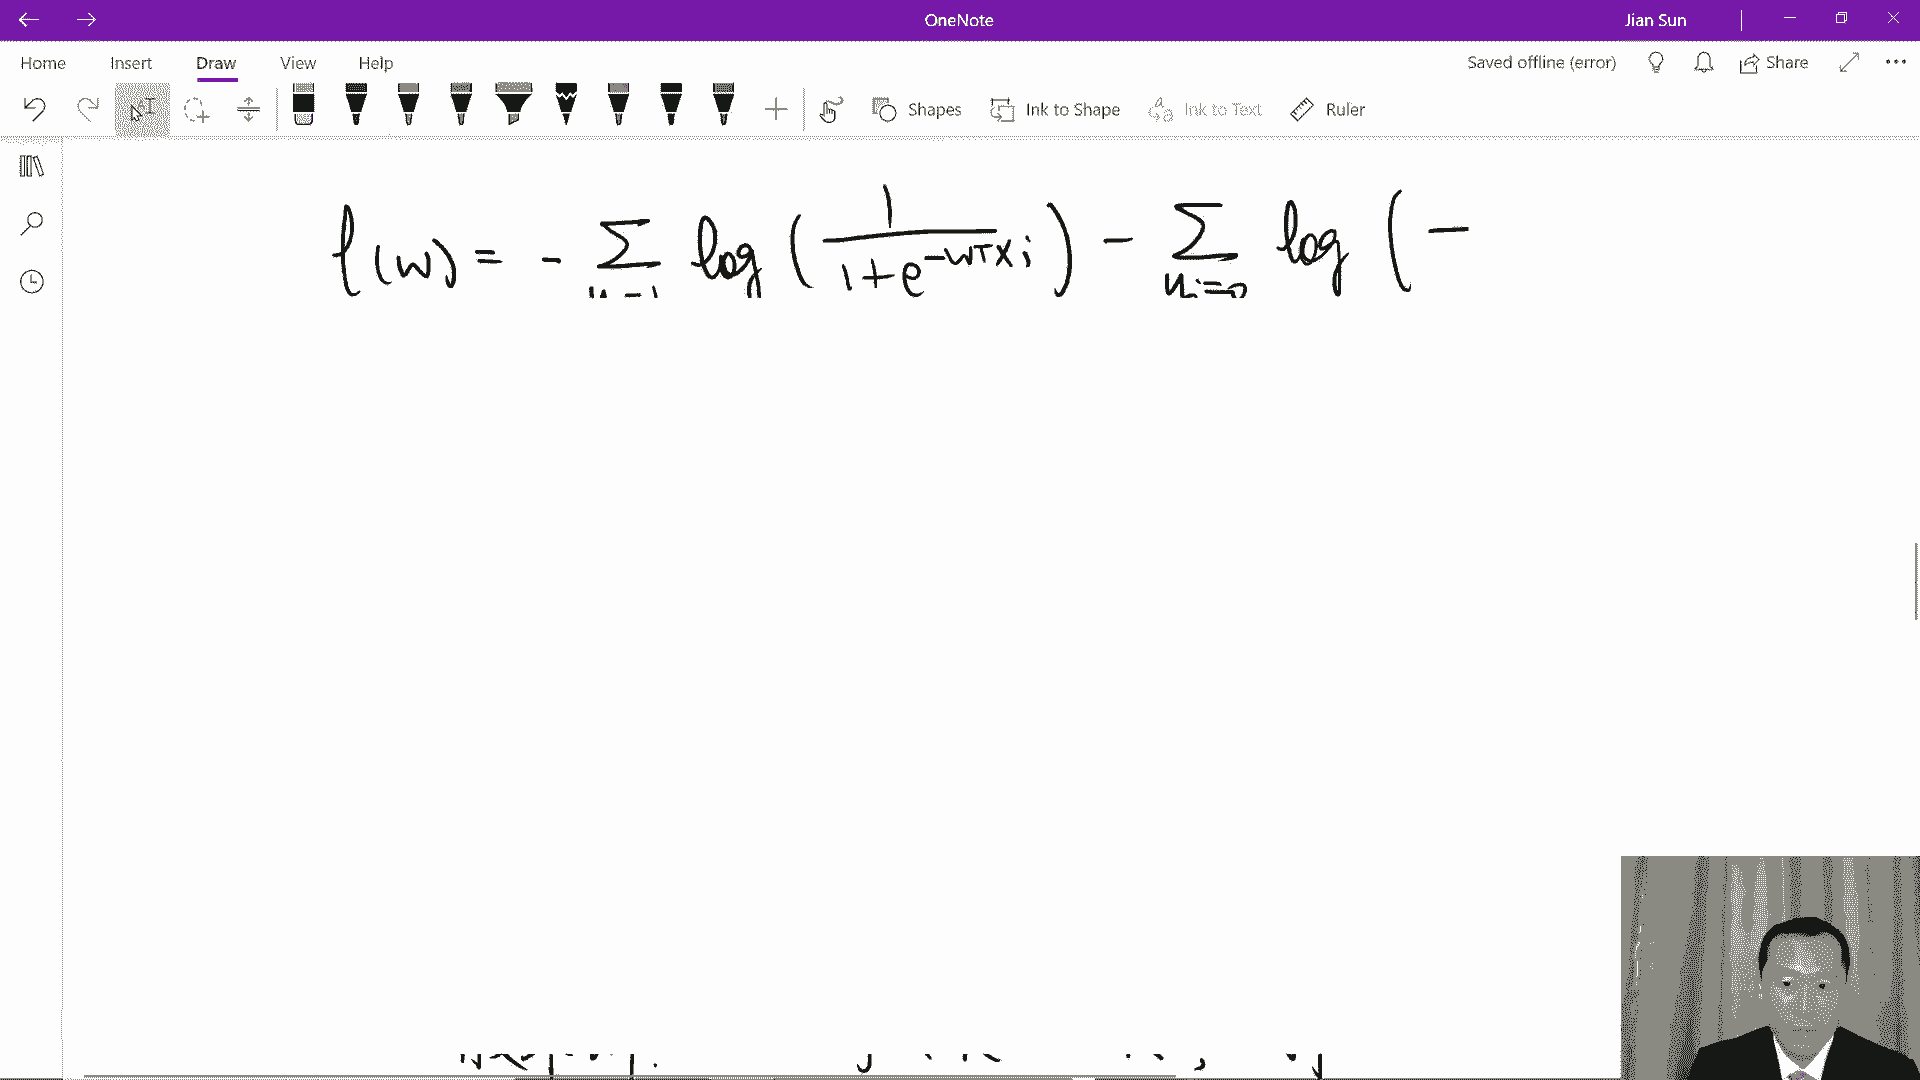 OneNote Jian Sun
Home Insert Draw View Help Saved offline (error) Share
Shapes Ink to Shape Ink to Text Ruler
l(w) = - Σ log (1/(1+e^{-wTxi})) - Σ log ( -